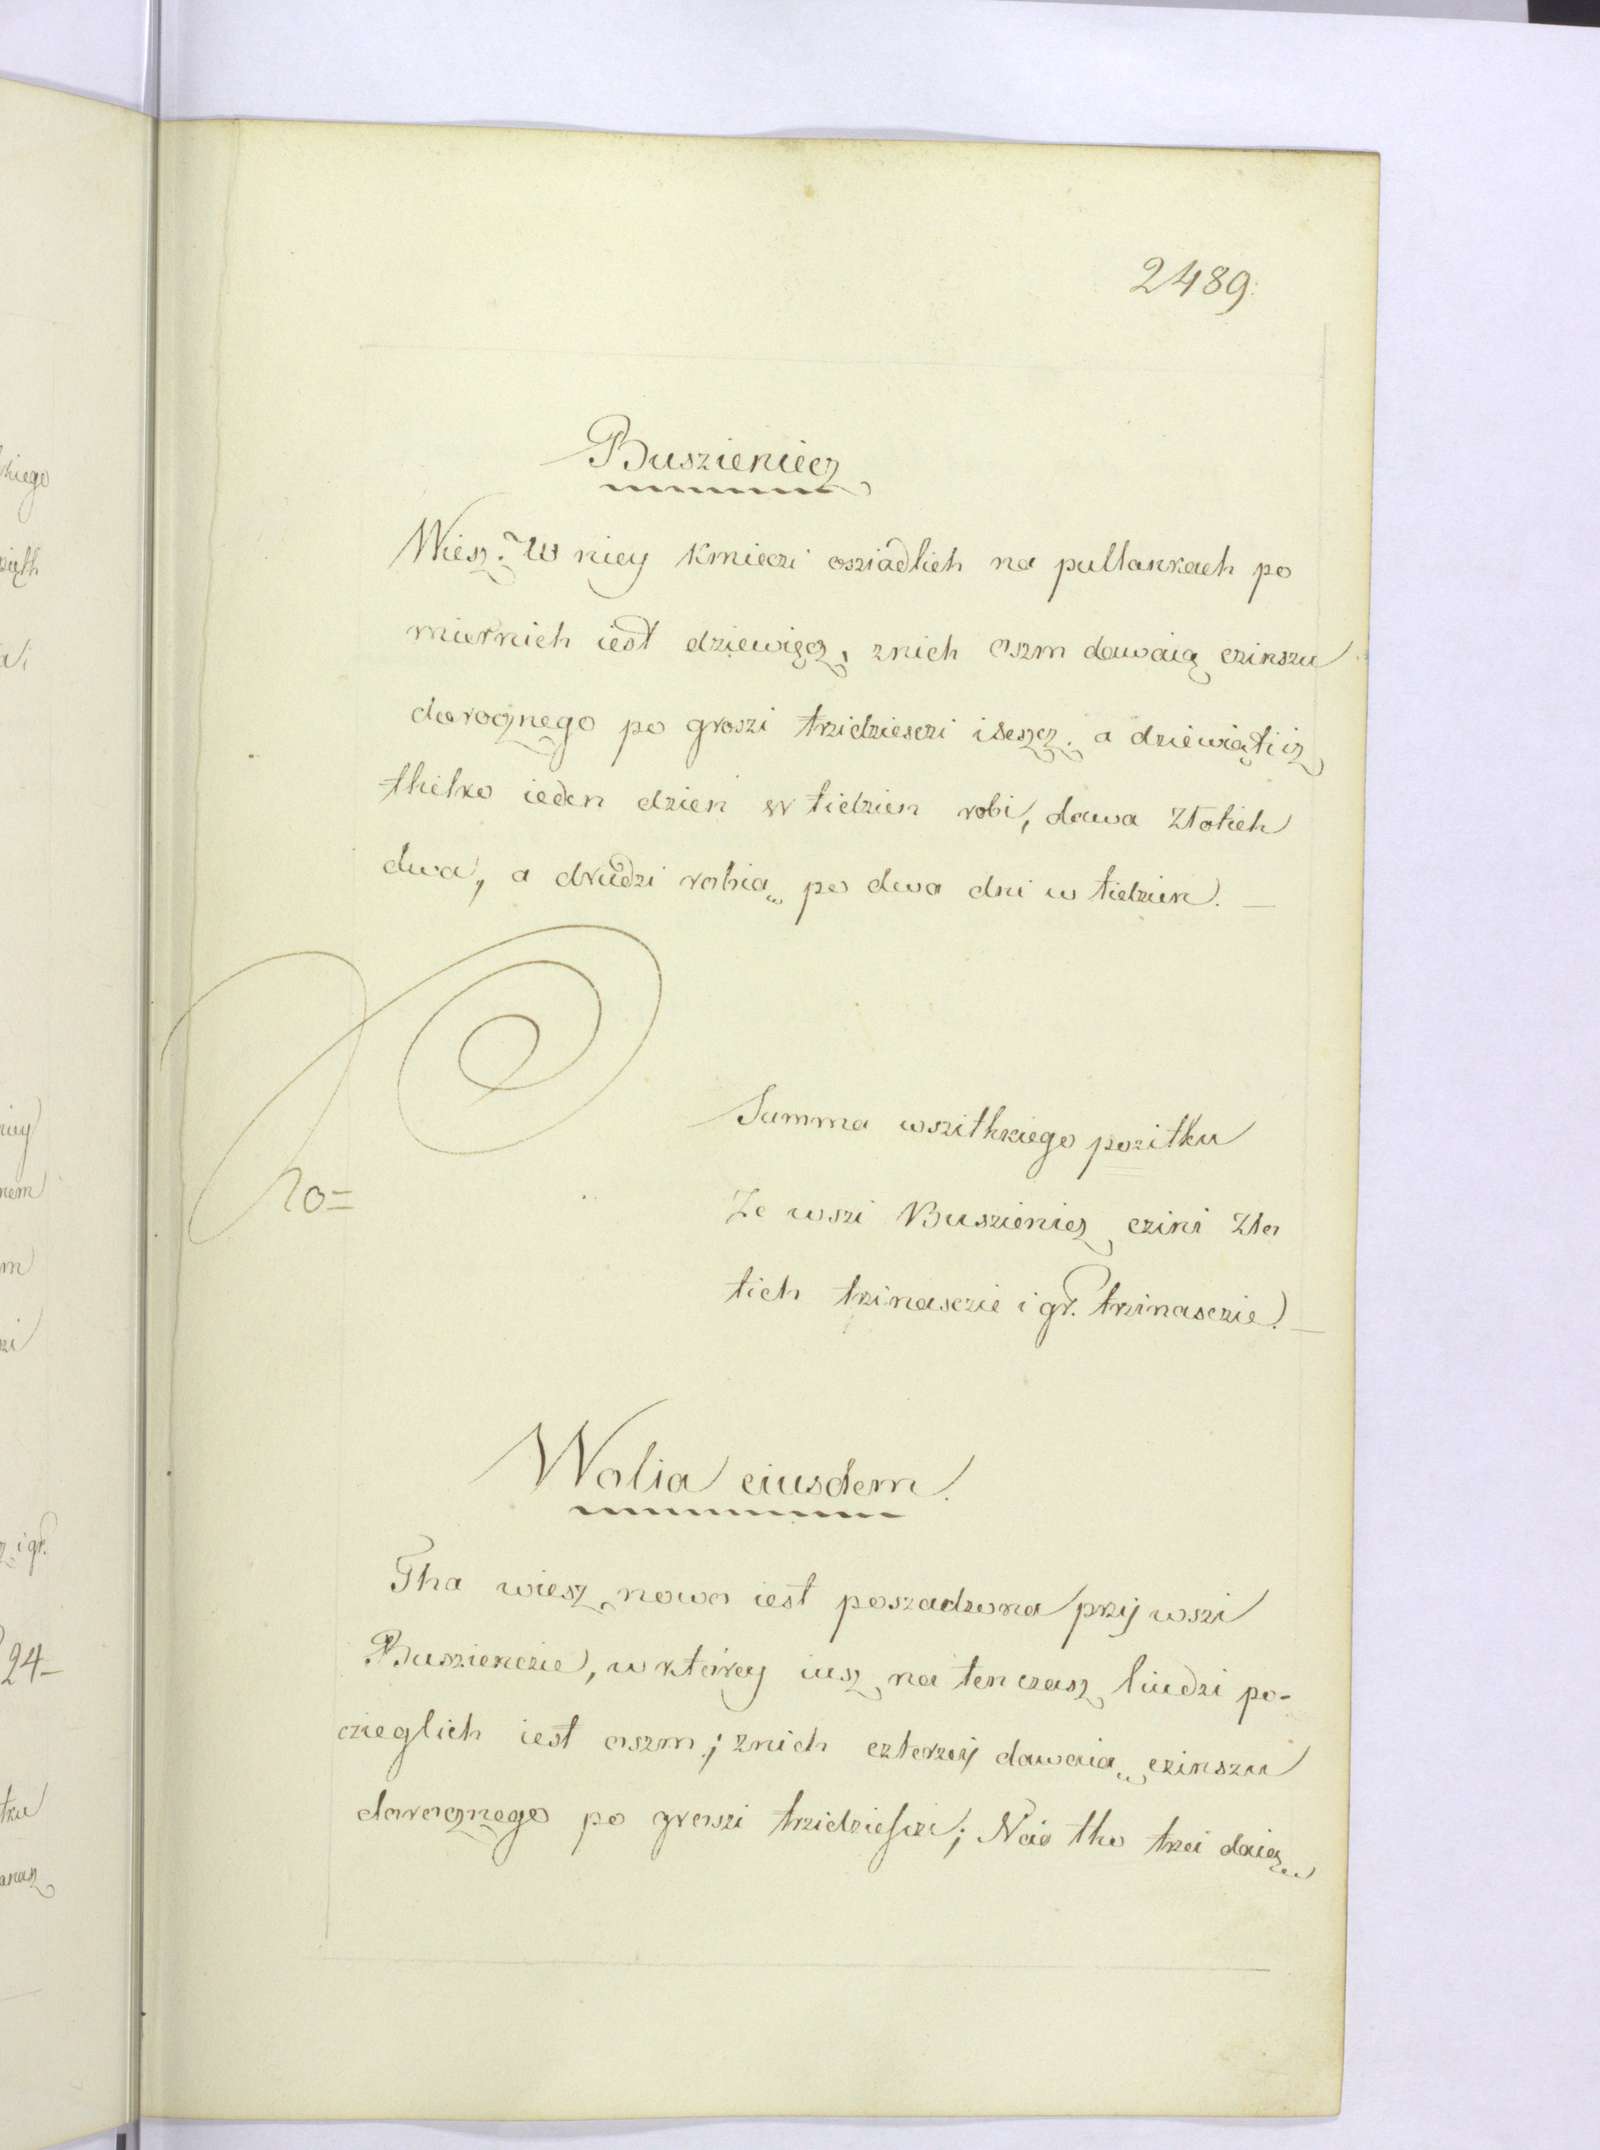 2489.
Buszieniecz
Wiesz. W niey kmieczi osziadlich na pullankach po
miernich iest dziewięcz, znich oszm dawaią czinszu
dorocznego po groszi trzidziesczi i szescz. a dziewiąti iz
thilko ieden dzien w tidzien robi, dawa Złotich
dwa, a drudzi robią po dwa dni w tidzien. —
Summa wszithkiego pozitku
Ze wszi Buszieniecz czini Zło
tich trzinasczie i gr. trzinasczie. —
Wolia eiusdem.
Tha wiesz nowo iest poszadzona przy wszi
Buszienczie, wktorey iusz na ten czasz liudzi po-
czieglich iest oszm; znich czterzej dawaią czinszu
dorocznego po groszi trzidziesczi; Na tho trzi daią
skiego
24 —
i gr.